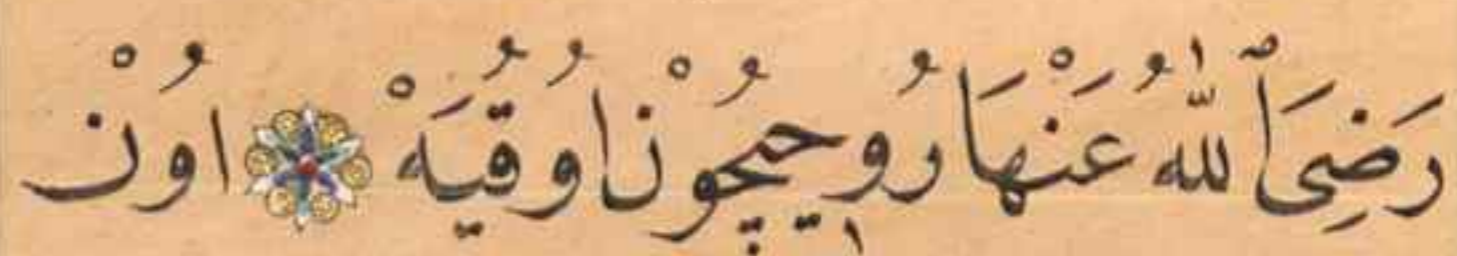 رَضِىَ ٱللّٰهُ عَنْهَا رُوحٖيچُوْنْ اوُقُيَهْ ۞ اوُنْ